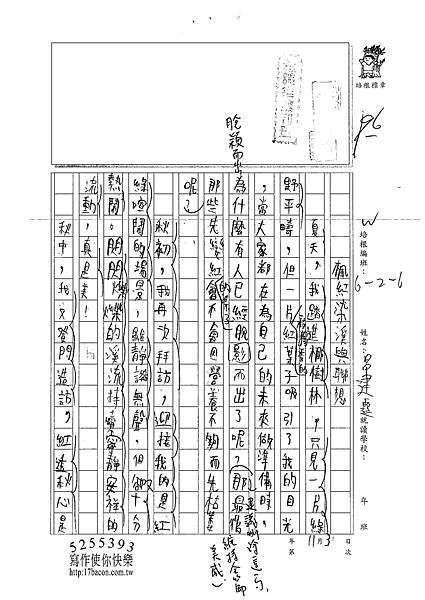 培根標章
96
W
培根編班：6-2-6
姓名：
就讀學校：
年 班
年 11月3日
第 次
楓紅深溪與聯想
夏天，我踏進椰樹林，只見一片綠
野平疇，但一片紅葉子吸引了我的目光
，當大家都在為自己的未來做準備時，
為什麼有人已經脫影而出了呢？那最搶
脫穎而出
那些先變紅會不會因營養不夠而先枯萎
呢？
秋初，我再次拜訪，迎接我的是紅
綠喧鬧的場景，雖靜謐無聲，但卻十分
熱鬧。閃閃爍爍的溪流持續寧靜安祥的
流動，真是美！
秋中，我又登門造訪，紅透秋心是
5255393
寫作使你快樂
http://17bacon.com.tw/